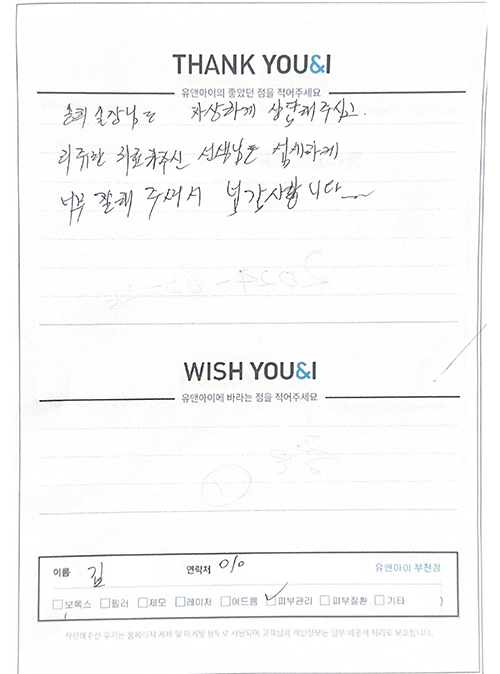 THANK YOU&I
유앤아이의 좋았던 점을 적어주세요
실장님도 자상하게 상담해주시고
선생님도 섬세하게
너무 잘해 주셔서 넘 감사합니다~
WISH YOU&I
유앤아이에 바라는 점을 적어주세요
이름 김 연락처 010 유앤아이 부천점
보톡스 필러 제모 레이저 여드름 피부관리 피부질환 기타 )
작성해주신 후기는 홈페이지 게재 및 마케팅 용도로 사용되며 고객님의 개인정보는 일부 비공개 처리로 보호됩니다.